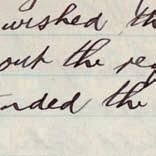 wished th
out the re
nded the